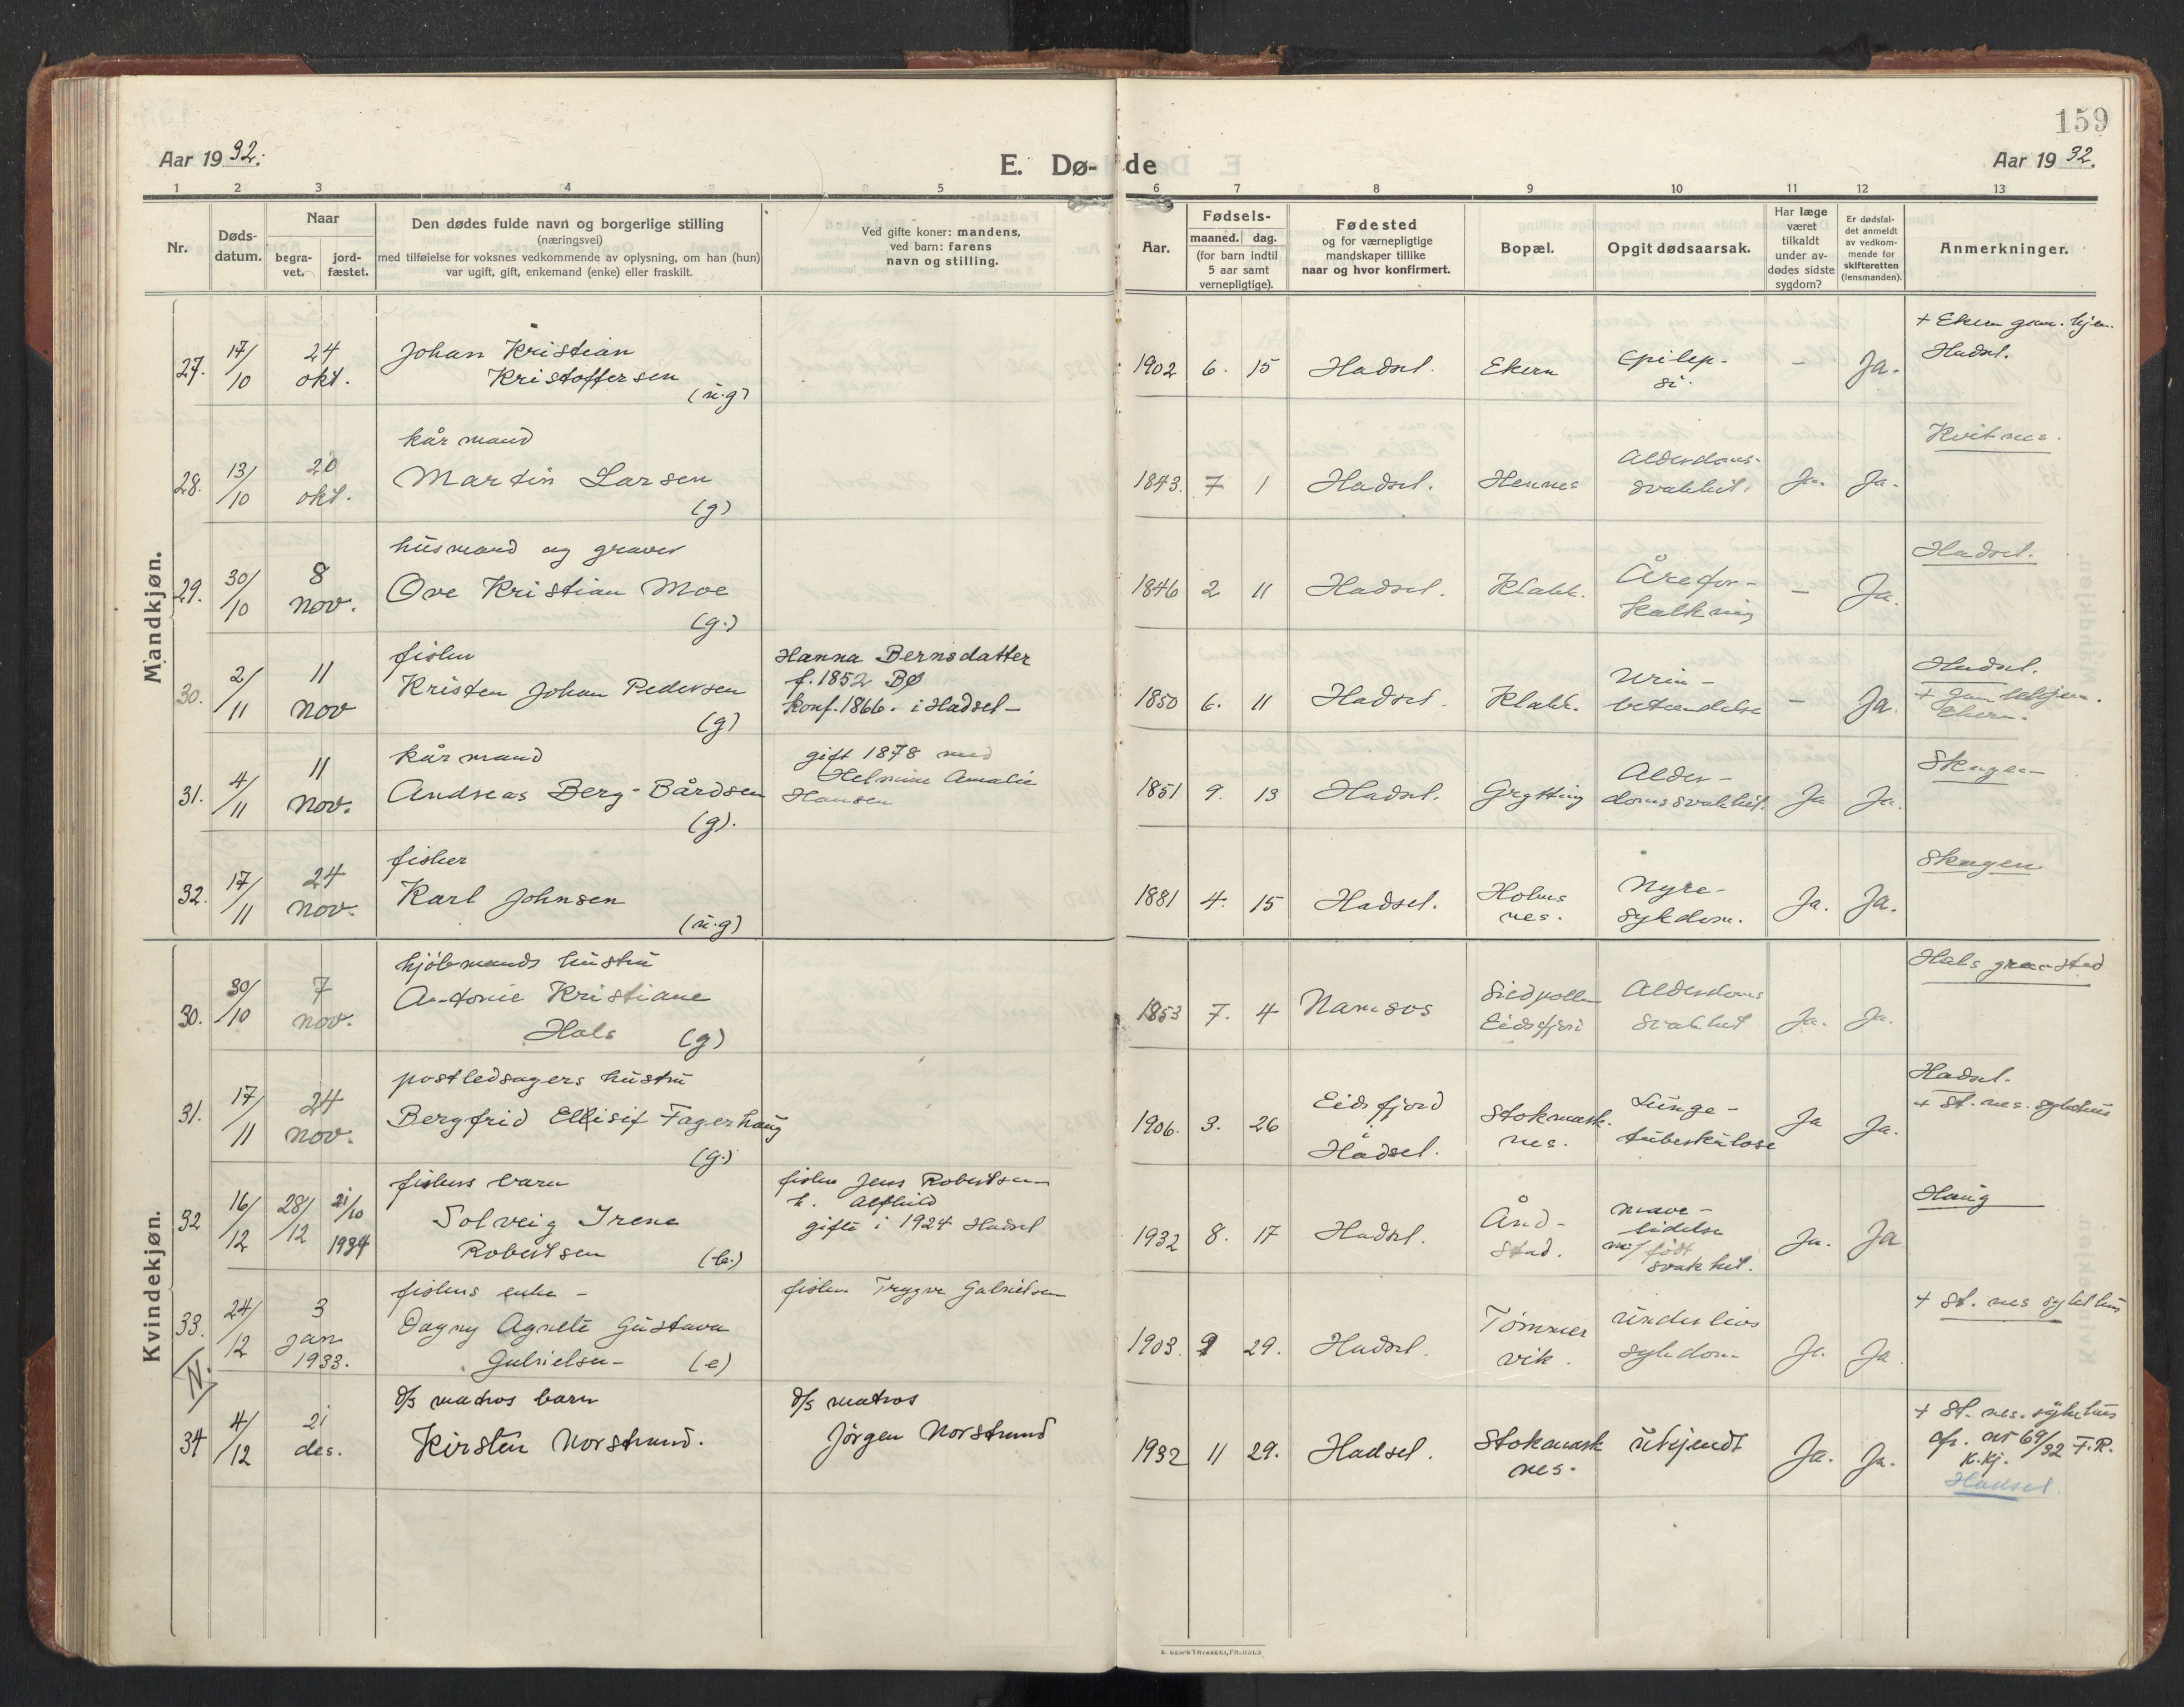 159
Aar 1932.
E. Dø-de
Aar 1932.
1 2 3 4 5 6 7 8 9 10 11 12 13
Nr.
Døds-
datum.
Naar
begra-
vet.
jord-
fæstet.
Den dødes fulde navn og borgerlige stilling
(næringsvei)
med tilføielse for voksnes vedkommende av oplysning, om han (hun)
var ugift, gift, enkemand (enke) eller fraskilt.
Ved gifte koner: mandens,
ved barn: farens
navn og stilling.
Aar.
Fødsels-
maaned. dag.
(for barn indtil
5 aar samt
vernepligtige).
Fødested
og for værnepligtige
mandskaper tillike
naar og hvor konfirmert.
Bopæl.
Opgit dødsaarsak.
Har læge
været
tilkaldt
under av-
dødes sidste
sygdom?
Er dødsfal-
det anmeldt
av vedkom-
mende for
skifteretten
(lensmanden).
Anmerkninger.
Mandkjøn.
27. 17/10 24 okt.
Johan Kristian
Kristoffersen
(u.g)
1902 6. 15 Hadsel. Ekern
Epilep-
si.
- Ja.
+ Ekern gam.hjem.
Hadsel.
28. 13/10 20 okt.
kårmand
Martin Larsen
(g)
1843. 7 1 Hadsel. Hennes
Alderdoms-
svakhet.
Ja. Ja.
Kvitnes.
29. 30/10 8 nov.
husmand og graver
Ove Kristian Moe
(g.)
1846 2 11 Hadsel. Klakk.
Årefor-
kalkning
- Ja.
Hadsel.
30. 2/11 11 nov
fisker
Kristen Johan Pedersen
(g)
Hanna Bernsdatter
f. 1852 Bø
konf. 1866. i Hadsel-
1850 6. 11 Hadsel. Klakk.
Urin-
betændelse
- Ja.
Hadsel.
Ekern.
31. 4/11 11 nov.
kårmand
Andreas Berg-Bårdsen
(g).
gift 1878 med
Helmine Amalie
Hansen
1851 9. 13 Hadsel. Grytting
Alder-
domssvakhet.
Ja Ja.
Skagen
32. 17/11 24 nov.
fisker
Karl Johnsen
(u.g)
1881 4. 15 Hadsel.
Holms
nes.
Nyre-
sykdom.
Ja. Ja.
Skagen
Kvindekjøn.
30. 30/10 7 nov.
kjøbmands hustru
Antonie Kristiane
Hals (g)
1853 7. 4 Namsos
Sildpollen
Eidsfjord
Alderdoms
svakhet
Ja. Ja.
Hals gravsted
31. 17/11 24 nov.
postledsagers hustru
Bergfrid Ellisif Fagerhaug
(g.)
1906. 3. 26
Eidsfjord
i
Hadsel.
Stokmark-
nes.
Lunge-
tuberkulose
Ja Ja.
Hadsel.
+ St. nes. sykehus
32 16/12 28/12 21/10 1934
fiskers barn
Solveig Irene
Robertsen (b.)
fisker Jens Robertsen
h. Alfhild
gifte i 1924 Hadsel
1932 8. 17 Hadsel.
Ånd-
stad.
mave-
lidelse
m/ født
svakhet.
Ja. Ja
Haug
33. 24/12 3 jan 1933.
fiskers enke -
Dagny Agnete Gustava
Gabrielsen- (e)
fisker Trygve Gabrielsen
1903. 9 29. Hadsel.
Tømmer
vik.
underlivs
sykdom
Ja. Ja
+ St. nes sykehus
N.
34 4/12 21 des.
d/s matros barn
Kirsten Norstrand.
d/s matros
Jørgen Norstrand
1932 11 29. Hadsel.
Stokmark
nes.
ukjendt
Ja. Ja.
+ St. nes. sykehus
cfr. nr 69/32 F.R.
K.kj.
Hadsel.